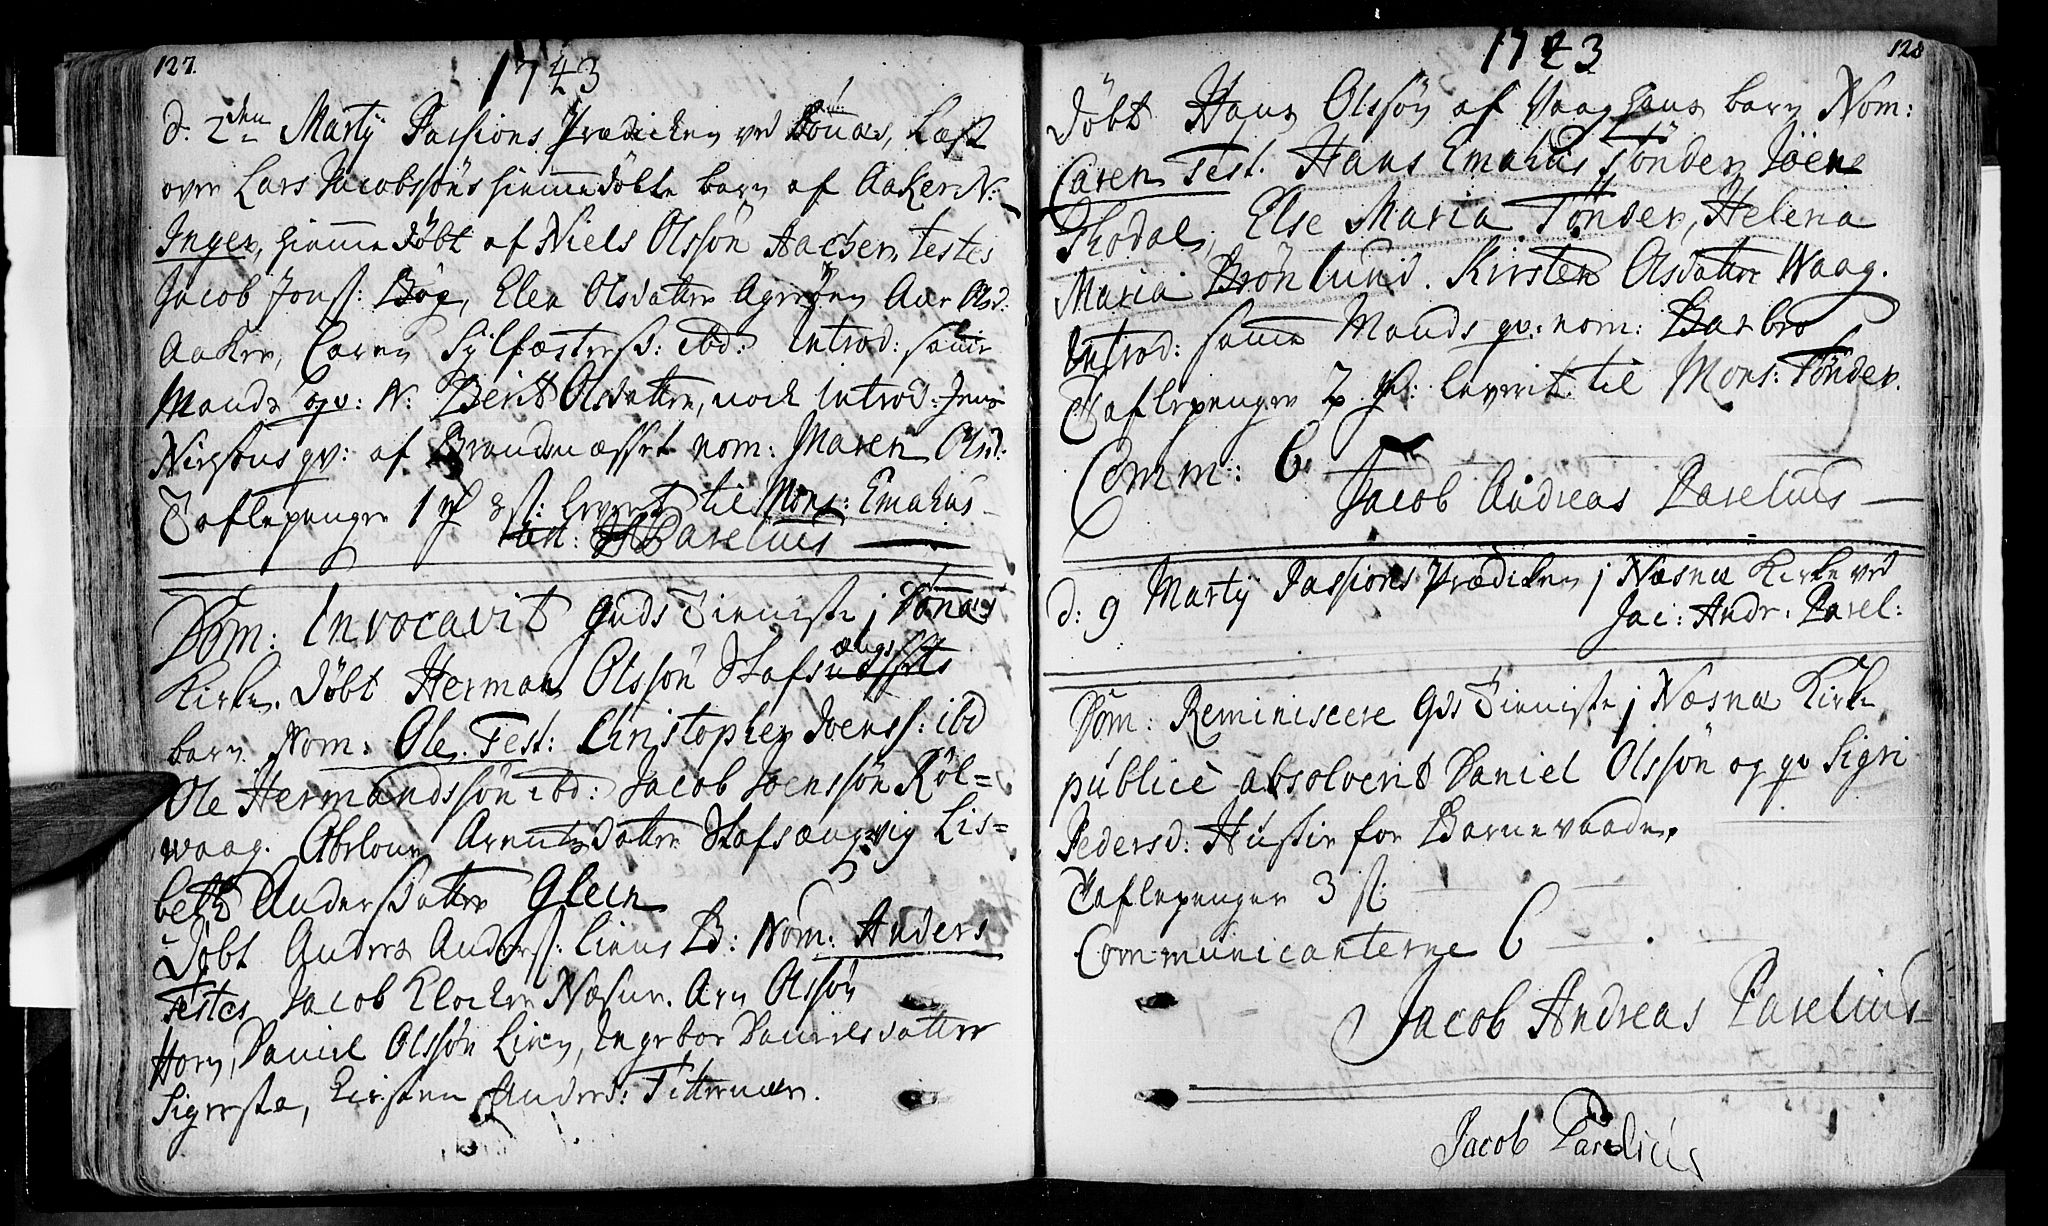 127.
1743
d. 2den Martij Passions Prædicken ved Dönnæs, Læst
over Lars Jacobssöns hiemmedöbte barn af Aaker N:
Inger, hiemmedöbt af Niels Olssön Aacher, testes
Jacob Jonss: Bög, Elen Olsdatter Ageröen Aar Olsd:
Aaker, Caren Sylfæsterss: ibd: Introd: samme
Mands qv: N: Berit Olsdatter, noch introd: Jens
Nielsøns qv: af Brandsnæsset nom: Maren Olsd:
Taflepenger 1 8 s: leverit til Mons: Emahus
Parelius
Dom: Invocavit Guds Tieniste j Dönnæs
Kirke. Döbt Herman Olssön Stafsængs
barn Nom: Ole. Test: Christopher Joenss: ibd
Ole Hermandssön ibd: Jacob Joenssön Röl=
waag. Abelone Arentzdatter Stafsængvig Lis=
beth Andersdatter Glein
Döbt Anders Anderss: Liens B: Nom: Anders
Testes Jacob Klocker Næsne. Arn Olssön
Horn, Daniel Olssön Lien, Ingebor Danielsdatter
Sigersta, Kirsten Andersd: Titternæs.
128
1743
Döbt Hans Olssön af Vaag hans barn Nom:
Caren Test. Hans Emahus Tönder, Joen
Thodal, Else Maria Tönder, Helena
Maria Brönlund. Kirsten Olsdatter Waag.
Introd: samme Mands qv: nom: Barbro
Taflepenger 2 leverit til Mons: Tönder.
Comm: 6
Jacob Andreas Parelius
d: 9 Martij Passions Prædiken j Næsne Kirke ved
Jac: Andr: Parel:
Dom: Reminiscere Gds Tieniste j Næsne Kirke
publicè absolverit Daniel Olssön og qv Sigri
Pedersd: Hustie for Barnevaade.
Taflepenger 3 s:
Communicanterne 6
Jacob Andreas Parelius
Jacob Parelius